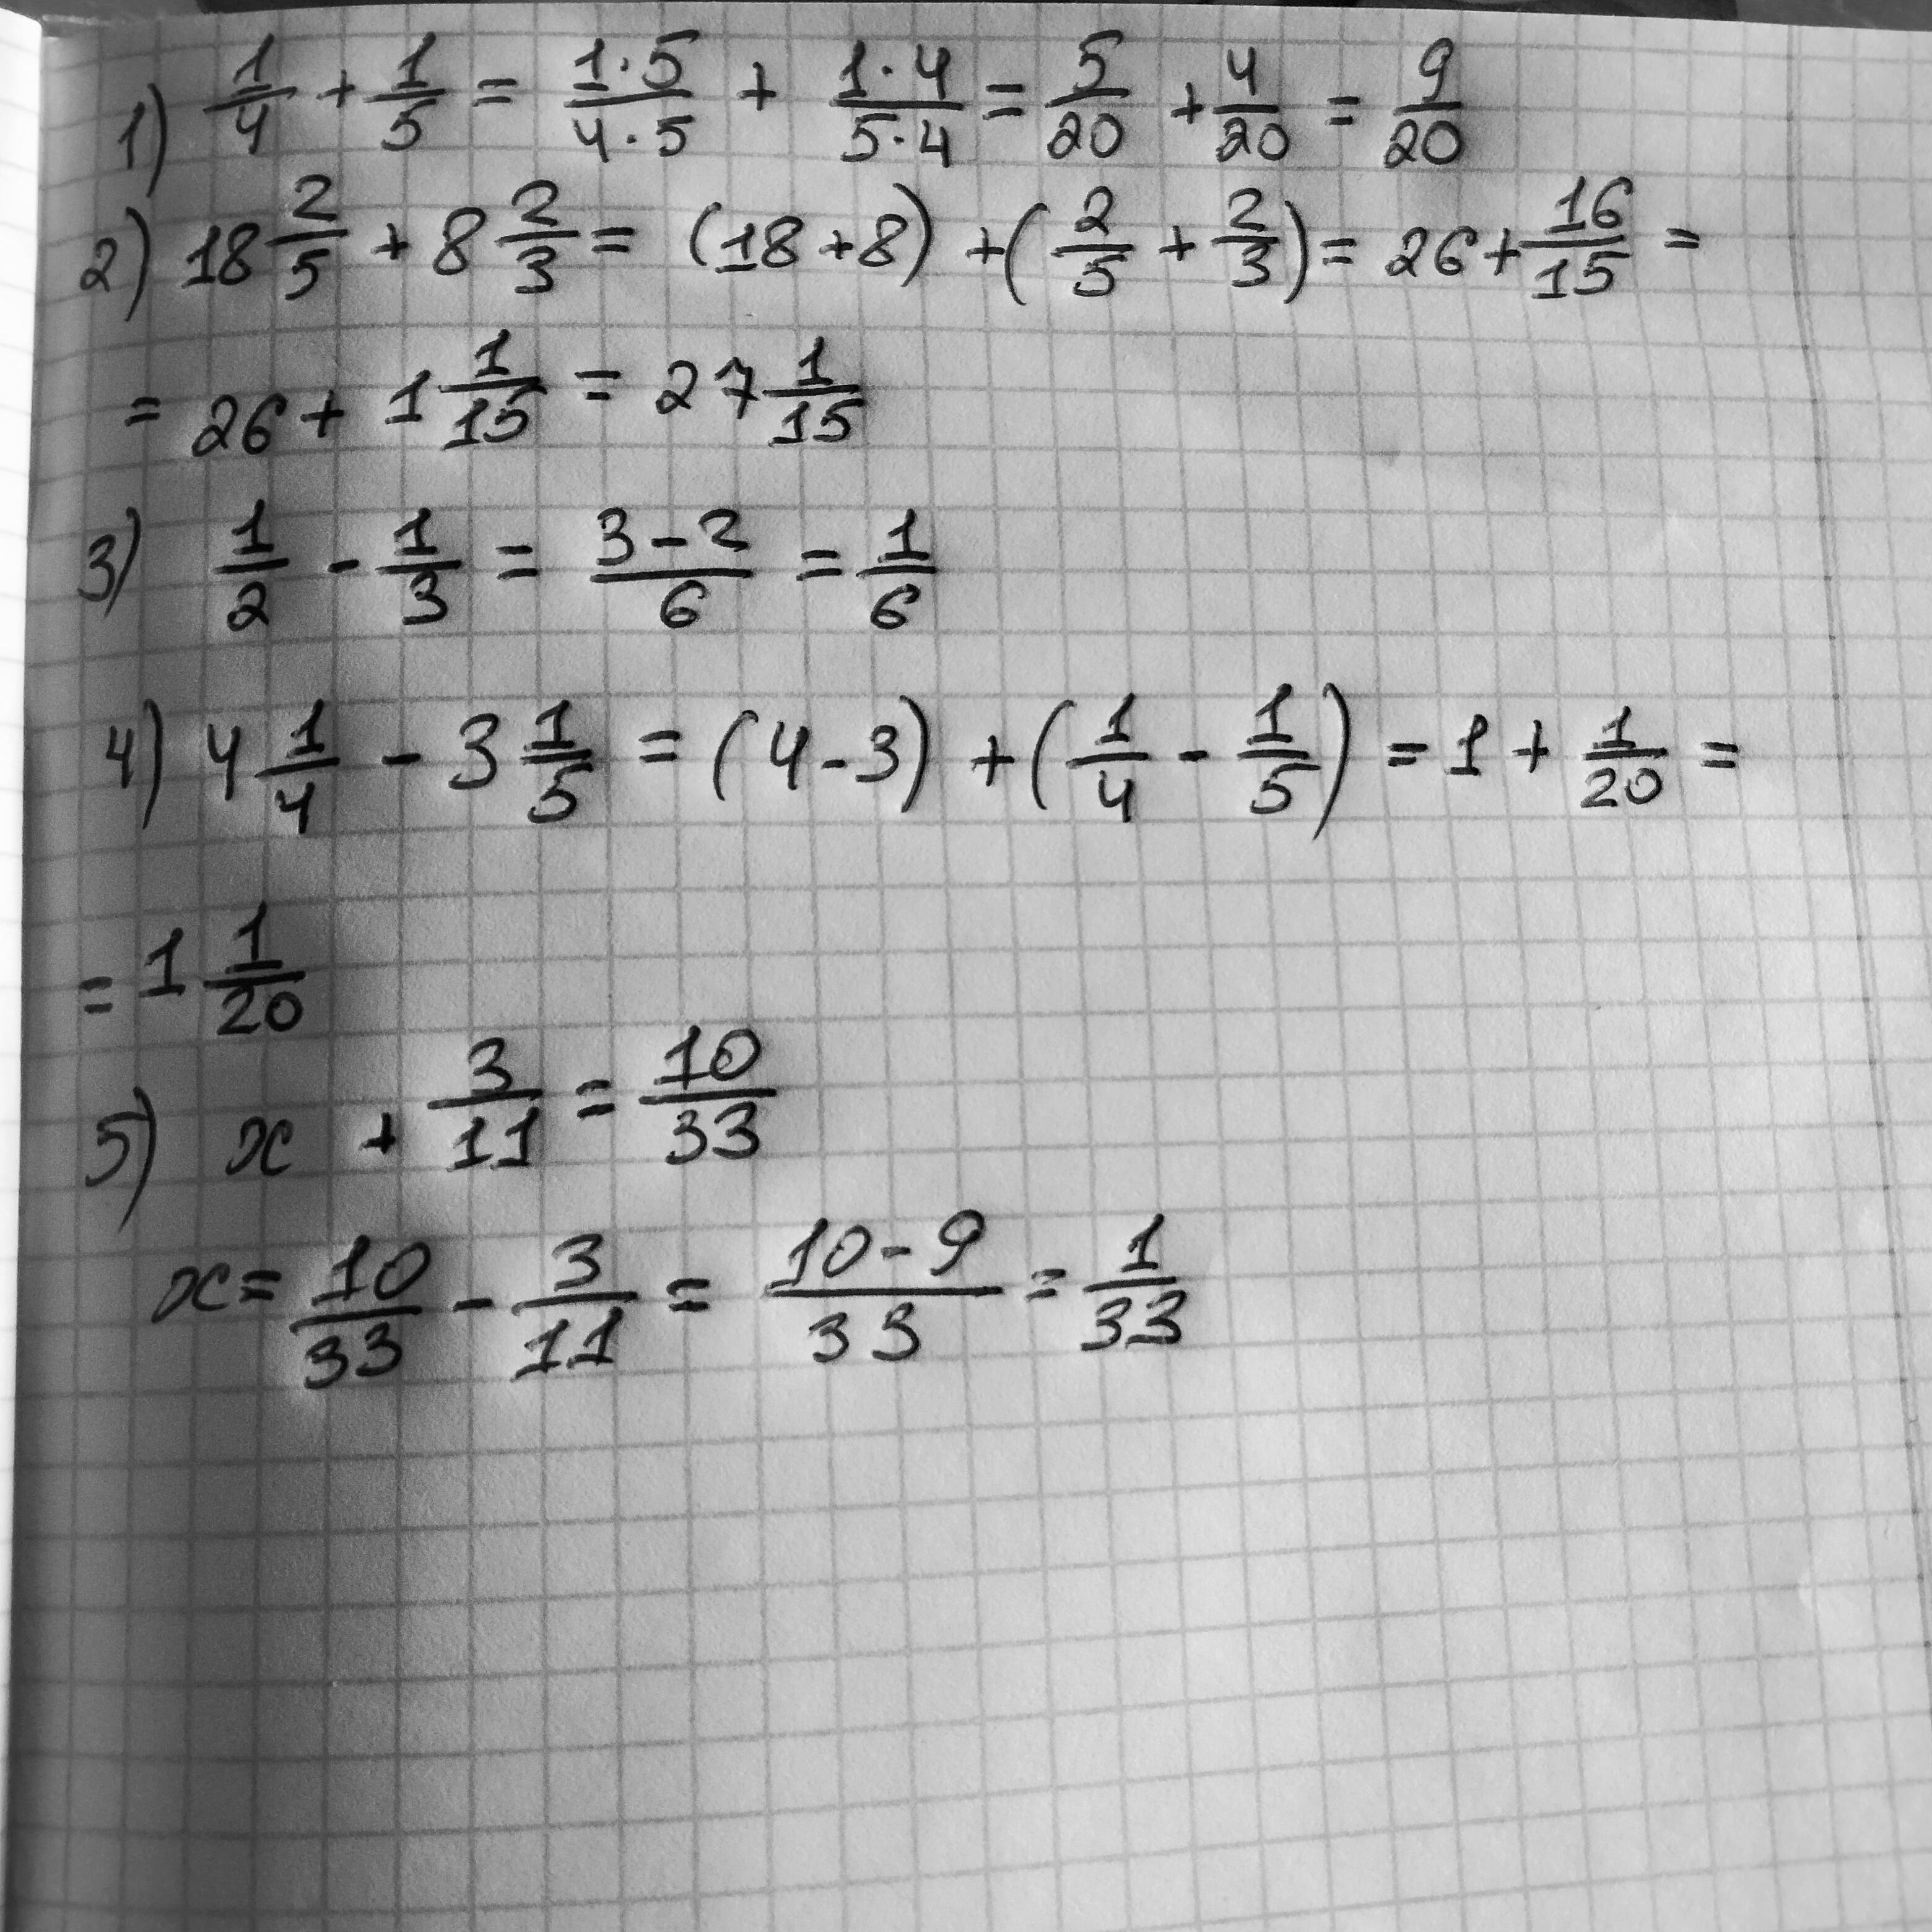 1) 1/4 + 1/5 = 1·5/4·5 + 1·4/5·4 = 5/20 + 4/20 = 9/20
2) 18 2/5 + 8 2/3 = (18+8) + (2/5 + 2/3) = 26 + 16/15 =
= 26 + 1 1/15 = 27 1/15
3) 1/2 - 1/3 = 3-2/6 = 1/6
4) 4 1/4 - 3 1/5 = (4-3) + (1/4 - 1/5) = 1 + 1/20 =
= 1 1/20
5) x + 3/11 = 10/33
x = 10/33 - 3/11 = 10-9/33 = 1/33